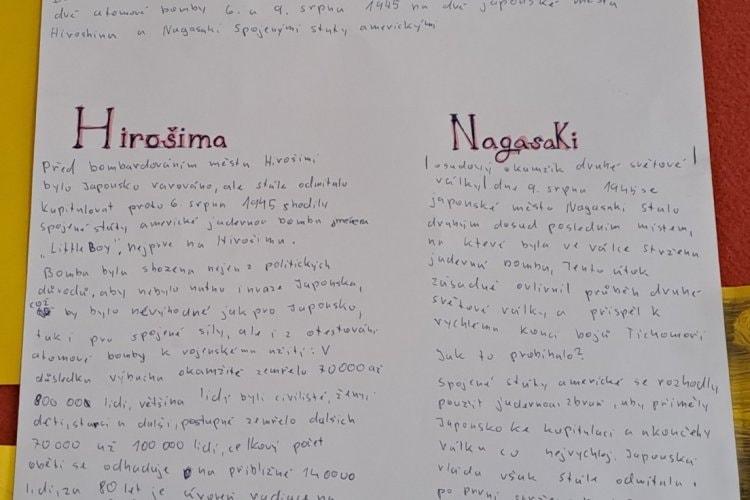 dvě atomové bomby 6. a 9. srpna 1945 na dvě japonské města
Hirošima a Nagasaki Spojenými státy americkými
Hirošima
Před bombardováním města Hirošimi
bylo Japonsko varováno, ale stále odmítalo
kapitulovat proto 6. srpna 1945 shodily
spojené státy americké jadernou bombu jménem
„Little Boy", nejprve na Hirošimu.
Bomba byla shozena nejen z politických
důvodů, aby nebylo nutno invaze Japonska,
což by bylo nevýhodné jak pro Japonsko,
tak i pro spojené síly, ale i z otestování
atomové bomby k vojenskému užití. V
důsledku výbuchu okamžitě zemřelo 70 000 až
800 000 lidí, většina lidí byli civilisté, ženy,
děti, starci a další, postupně zemřelo dalších
70 000 až 100 000 lidí, celkový počet
obětí se odhaduje na přibližně 140 000
lidí, za 80 let je úroveň radiace na
Nagasaki
Osudový okamžik druhé světové
války dne 9. srpna 1945 se
japonské město Nagasaki stalo
druhým dosud posledním místem,
na které byla ve válce stržena
jaderná bomba, Tento útok
zásadně ovlivnil průběh druhé
světové války a přispěl k
rychlému konci bojů Tichomoří
Jak to probíhalo?
Spojené státy americké se rozhodly
použít jadernou zbraň, aby přiměly
Japonsko ke kapitulaci a ukončily
válku co nejrychleji. Japonská
vláda však stále odmítala.
po první